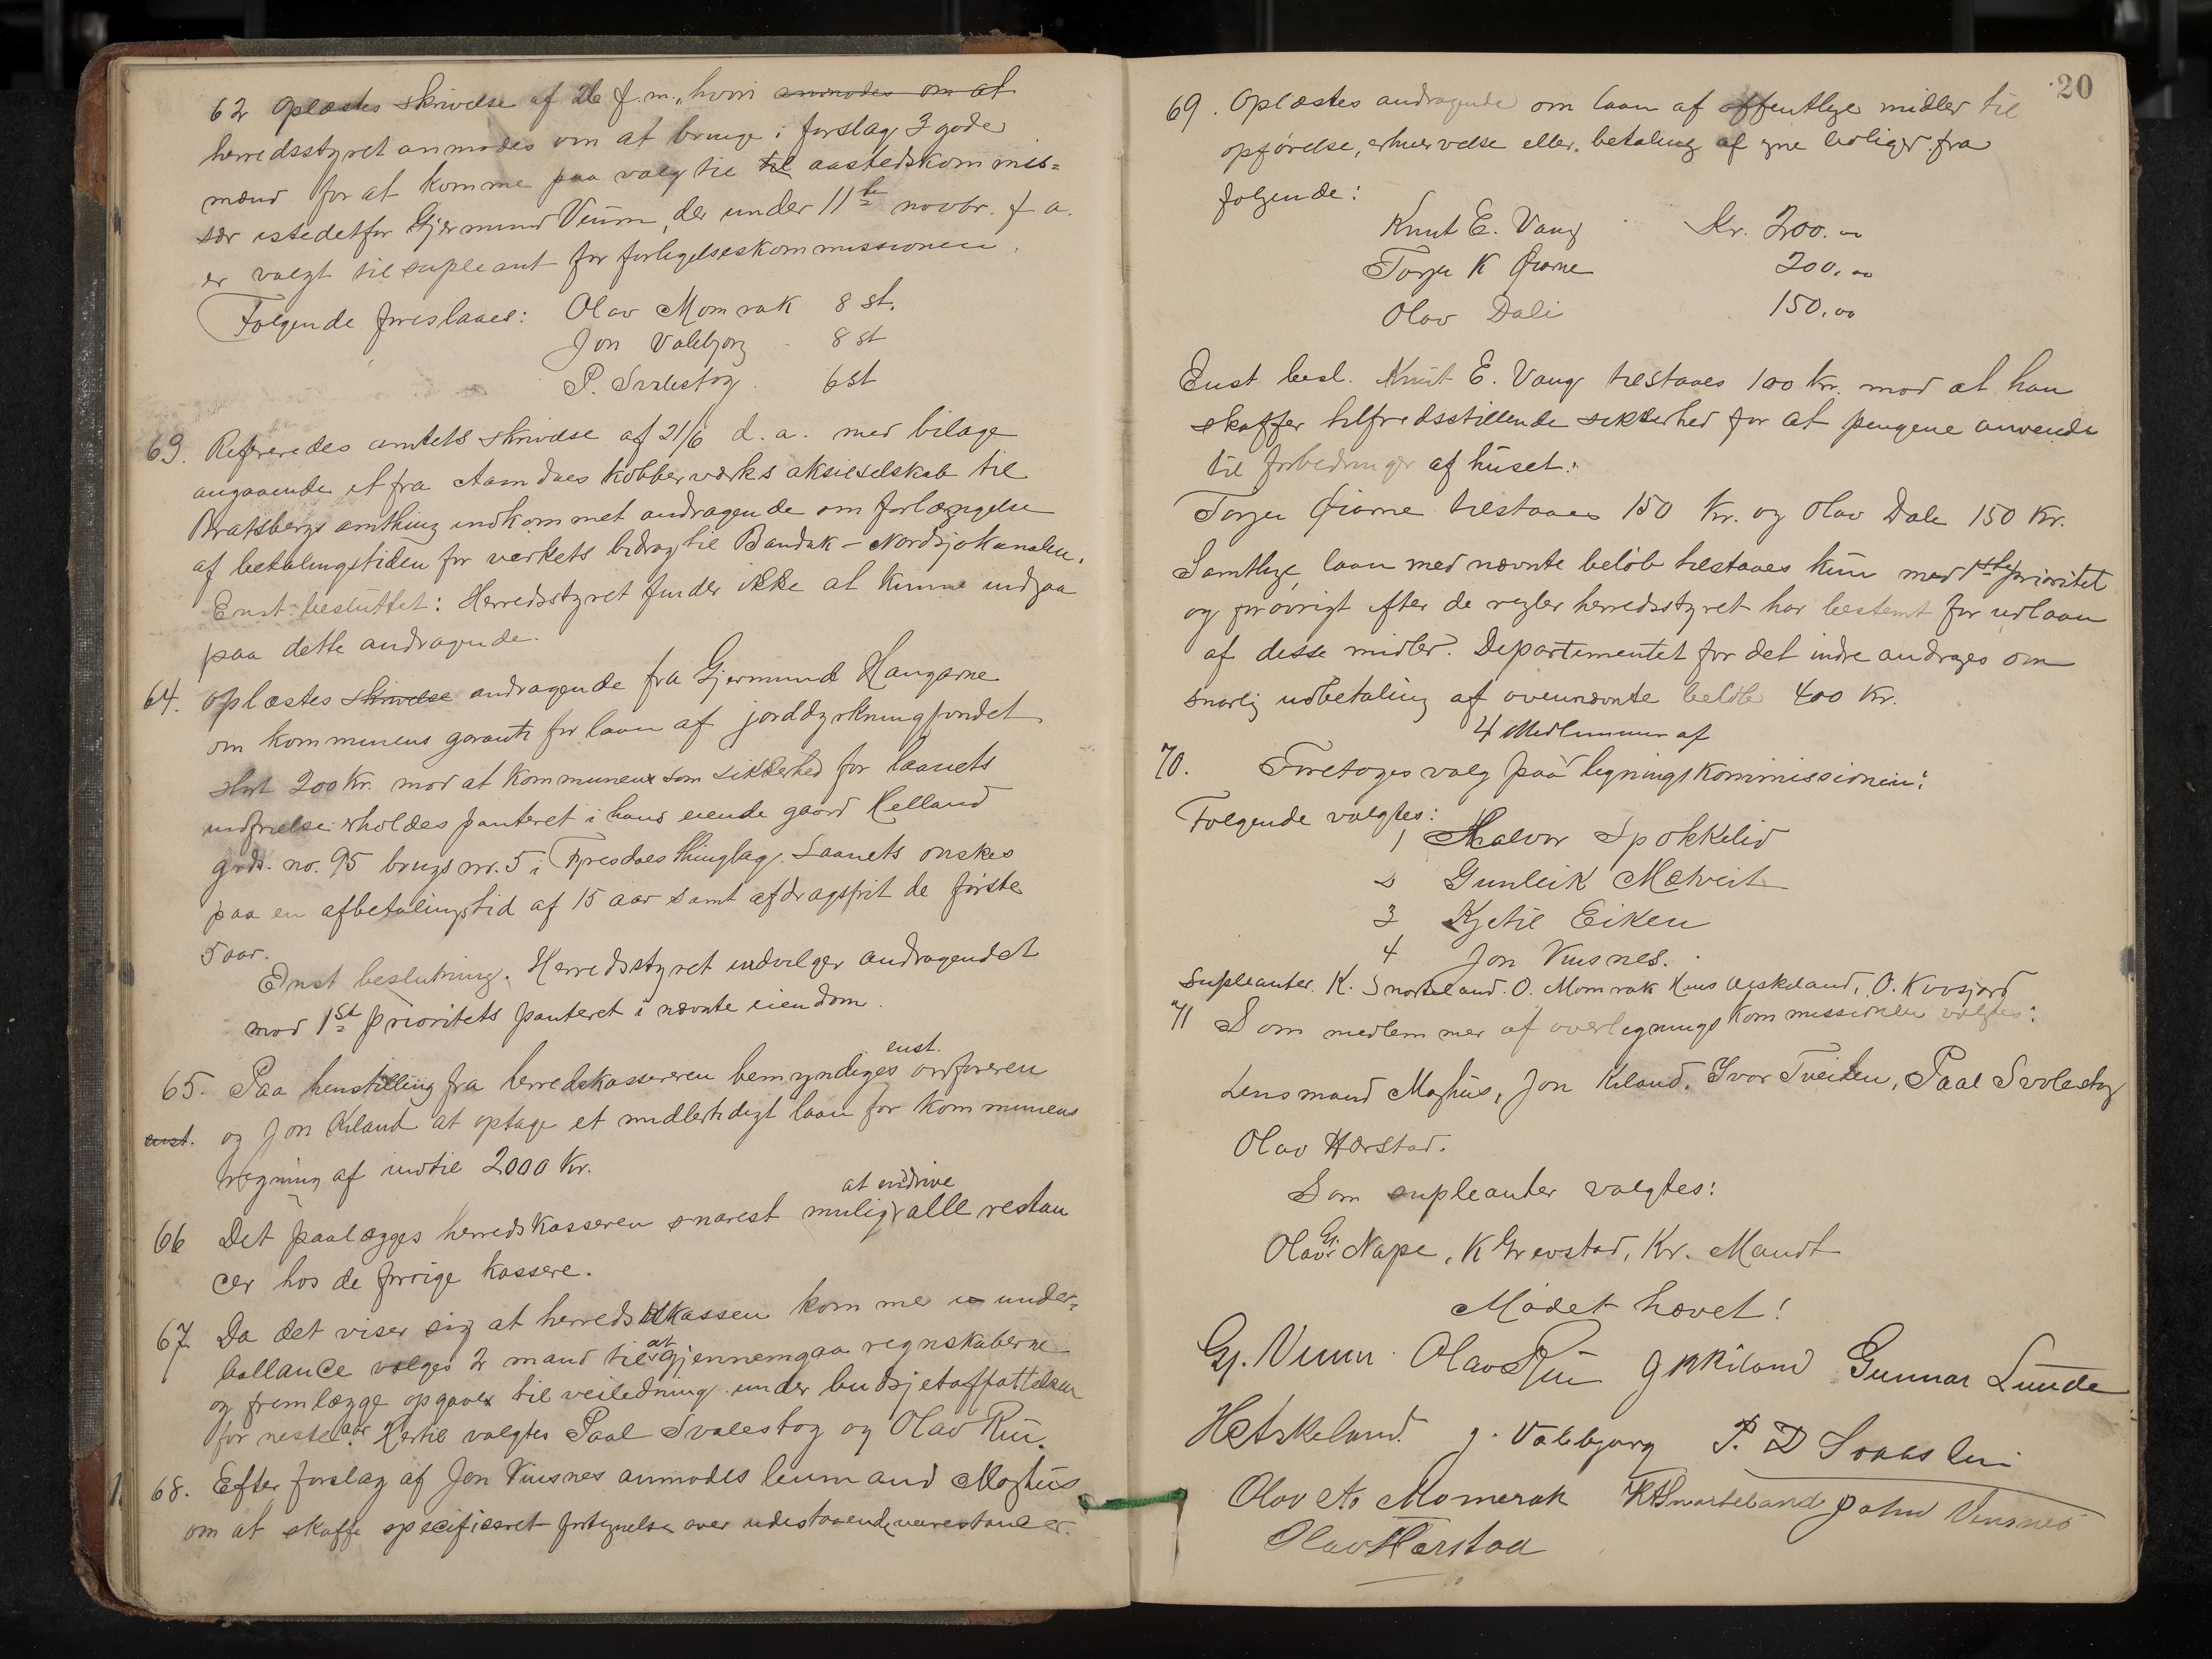 62 Oplæstes skrivelse af 26 f.m., hvori anmodes om at
herredsstyret anmodes om at bringe i forslag 3 gode
mænd for at komme paa valg til til aastedskommis=
sær istedetfor Gjermund Veum, der under 11te novbr. f. a.
er valgt til supleant for forligelseskommissionen.
Følgende foreslaaes: Olav Momrak 8 st.
Jon Valebjorg 8 st
P. Svalestog. 6 st
63. Refereredes amtets skrivelse af 21/6 d. a. med bilage
angaaende et fra Aamdals kobberværks aksieselskab til
Bratsbergs amthing indkommet andragende om forlængelse
af betalingstiden for verkets bidrag til Bandak-Nordsjøkanalen.
Enst. besluttet: Herredsstyret finder ikke at kunne indgaa
paa dette andragende.
64. Oplæstes skrivelse andragende fra Gjermund Haugarne
om kommunens garanti for laan af jorddyrkningfondet
stort 200 Kr. mod at kommunen som sikkerhed for laanets
indfrielse erholdes panteret i hans eiende gaard Helland
grds. no. 95 brugs nr. 5 i Fyresdals thinglag. Laanets ønskes
paa en afbetalingstid af 15 aar samt afdragsfrit de første
5 aar.
Enst beslutning. Herredsstyret indvilger andragendet
mod 1st prioritets panteret i nævnte eiendom.
enst.
65. Paa henstilling fra herredskassereren bemyndiges ordføreren
enst. og Jon Kiland at optage et midlertidigt laan for kommunens
regning af indtil 2000 Kr.
at inddrive
66 Det paalægges herredskasseren snarest mulig alle restan
cer hos de forrige kassere.
67 Da det viser sig at herredskassen kommer i under=
ballance vælges 2 mand til at gjennemgaa regnskaberne
og fremlægge opgaver til veiledning under budsjetaffattelsen
for neste aar. Hertil valgtes Paal Svalestog og Olav Rui.
68. Efter forslag af Jon Vuisnes anmodes lensmand Moghus
om at skaffe specificeret fortegnelse over udestaaende restancer.
20
69. Oplæstes andragende om laan af offentlige midler til
opførelse, erhvervelse eller betaling af egne boliger fra
følgende:
Knut E. Vang Kr. 200.00
Torje K Øiarne 200.00
Olav Dali 150.00
Enst besl. Knut E. Vang tilstaaes 100 kr. mod at han
skaffer tilfredsstillende sikkerhed for at pengene anvende
til forbedringer af huset.
Torjer Øiarne tilstaaes 150 Kr. og Olav Dale 150 Kr.
Samtlige laan med nævnte beløb tilstaaes kun mod 1ste prioritet
og forøvrigt efter de regler herredsstyret har bestemt for udlaan
af disse midler. Departementet for det indre andrages om
snarlig udbetaling af ovennævnte beløb 400 Kr.
4 Medlemmer af
70. Foretoges valg paa ligningskommissionen:
Følgende valgtes:
1 Halvor Spokkelid
2 Gunleik Mælveit
3 Kjetil Eiken
4 Jon Vuisnes.
Supleanter. K. Snarteland. O. Momrak Hans Aeskeland, O. Kvosjord
71 Som medlemmer af overligningskommissionen valgtes:
Lensmand Moghus, Jon Kiland, Ivar Tveiten, Paal Svalestog
Olav Hærstad.
Som supleanter valgtes:
Olav Gj. Nape, K Grevstad, Kr. Mandt
Mødet hævet!
Gj. Veum Olav Rui J K Kiland Gunnar Lunde
H Askeland. J. Valebjorg P. D Svales
Olav As Momerak K H Snarteland John Vuisnes
Olav Hærstad